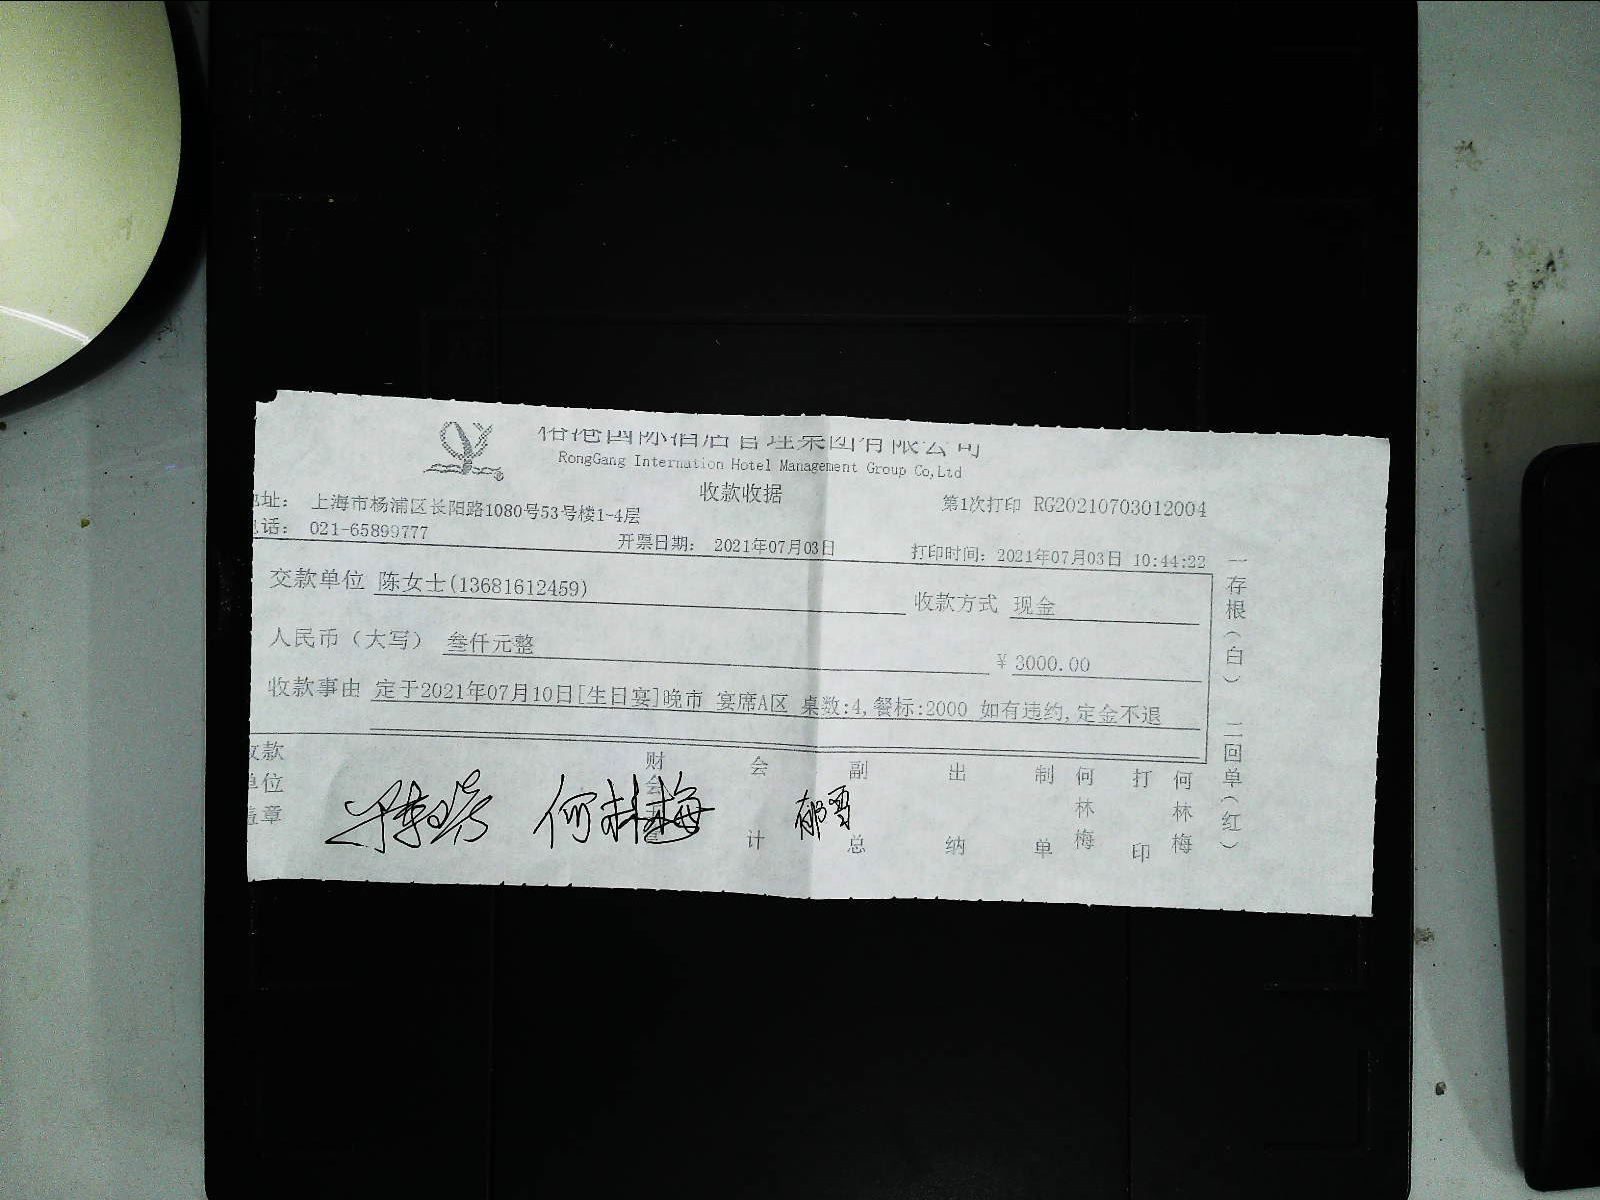 榕港国际酒店管理集团有限公司
RongGang Internation Hotel Management Group Co,Ltd
收款收据
第1次打印 RG20210703012004
地址: 上海市杨浦区长阳路1080号53号楼1-4层
电话: 021-65899777
开票日期: 2021年07月03日
打印时间: 2021年07月03日 10:44:22
交款单位 陈女士(13681612459)
收款方式 现金
人民币（大写） 叁仟元整
¥ 3000.00
收款事由 定于2021年07月10日[生日宴]晚市 宴席A区 桌数:4,餐标:2000 如有违约,定金不退
收款单位盖章
财会主管
何林梅
会计
副总
郁雪
出纳
制单 何林梅
打印 何林梅
一存根(白) 二回单(红)